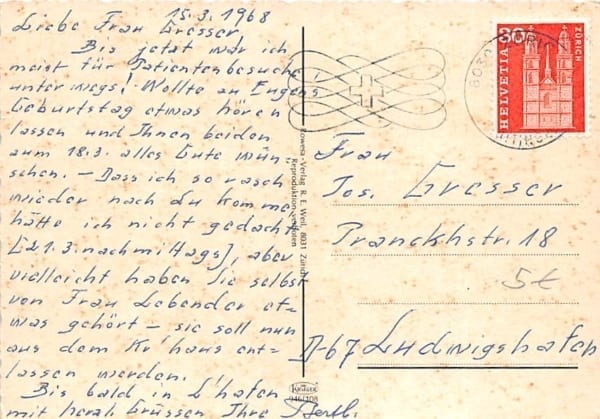 15.3.1968
Liebe Frau Gresser
Bis jetzt war ich
meist für Patientenbesuche
unterwegs! Wollte an Eugens
Geburtstag etwas hören
lassen und Ihnen beiden
zum 18.3. alles Gute wün-
schen. – Dass ich so rasch
wieder nach Lu komme
hätte ich nicht gedacht
[21.3. nachmittags], aber
vielleicht haben Sie selbst
von Frau Lebender et-
was gehört – sie soll nun
aus dem Kr'haus ent-
lassen werden.
Bis bald in L'hafen
mit herzl. Grüssen Ihre Bertl.
Rowesa-Verlag R. E. Weil, 8031 Zürich
Reproduktion verboten
KRÜGER
946/108
30
HELVETIA
ZÜRICH
ZÜRICH
Frau
Jos. Gresser
Pranckhstr. 18
5€
D-67 Ludwigshafen